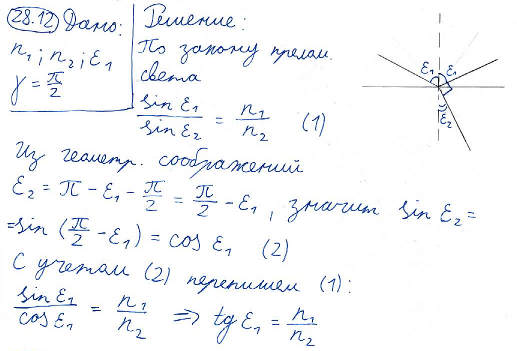 28.12 Дано:
n₁; n₂; ε₁
γ = π/2
Решение:
По закону прелом.
света
sin ε₁ / sin ε₂ = n₁ / n₂ (1)
ε₁ ε₁
ε₂
Из геометр. соображений
ε₂ = π - ε₁ - π/2 = π/2 - ε₁, значит sin ε₂ =
= sin (π/2 - ε₁) = cos ε₁ (2)
С учетом (2) перепишем (1):
sin ε₁ / cos ε₁ = n₁ / n₂ ⇒ tg ε₁ = n₁ / n₂